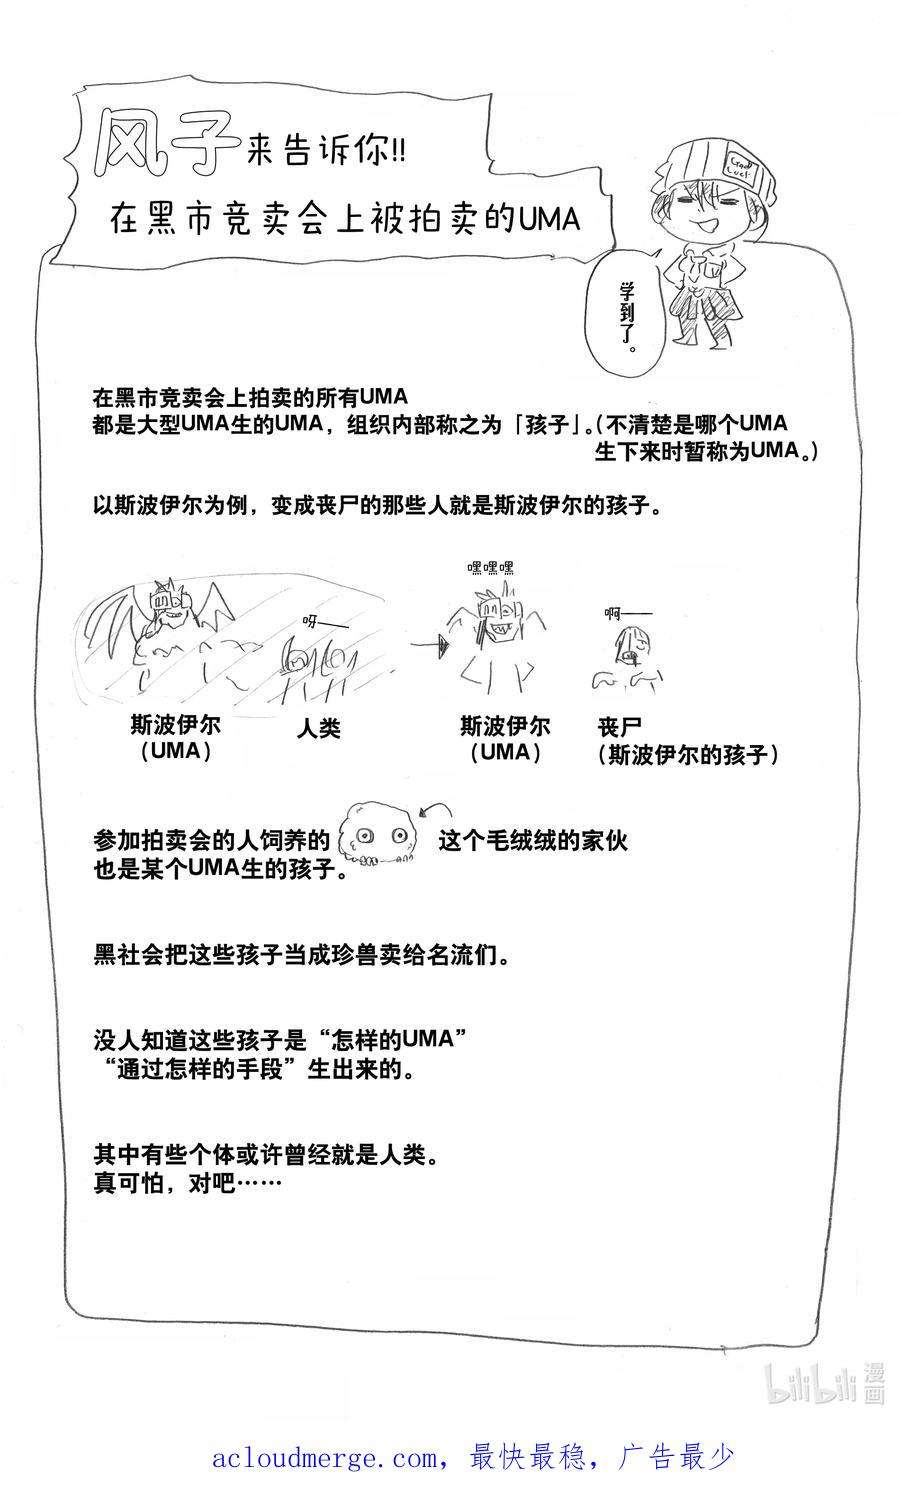 风子来告诉你!!
在黑市竞卖会上被拍卖的UMA
Good
Luck
学到了。
在黑市竞卖会上拍卖的所有UMA
都是大型UMA生的UMA，组织内部称之为「孩子」。（不清楚是哪个UMA
生下来时暂称为UMA。）
以斯波伊尔为例，变成丧尸的那些人就是斯波伊尔的孩子。
呀——
嘿嘿嘿
啊——
斯波伊尔
（UMA）
人类
斯波伊尔
（UMA）
丧尸
（斯波伊尔的孩子）
参加拍卖会的人饲养的 这个毛绒绒的家伙
也是某个UMA生的孩子。
黑社会把这些孩子当成珍兽卖给名流们。
没人知道这些孩子是“怎样的UMA”
“通过怎样的手段”生出来的。
其中有些个体或许曾经就是人类。
真可怕，对吧……
bilibili 漫画
acloudmerge.com, 最快最稳，广告最少